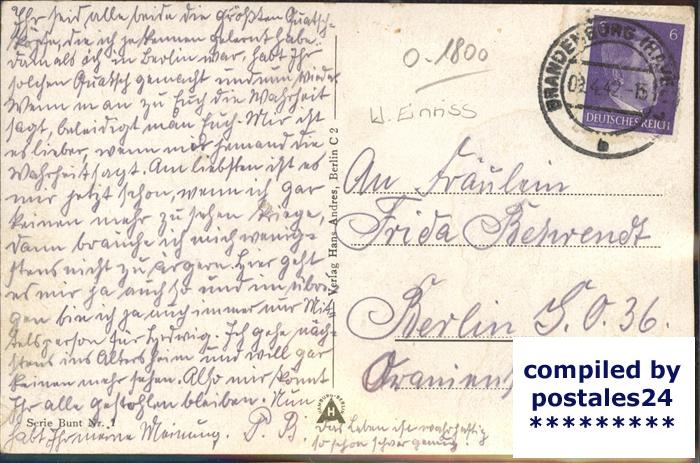 Ihr seid alle beide die größten Quatsch-
köpfe, die ich je kennen gelernt habe.
Damals als ich in Berlin war, habt Ihr
solchen Quatsch gemacht und nun wieder
Wenn man zu Euch die Wahrheit
sagt, beleidigt man Euch. Mir ist
es lieber, wenn mir jemand die
Wahrheit sagt. Am liebsten ist es
mir jetzt schon, wenn ich gar
keinen mehr zu sehen kriege,
dann brauche ich mich wenig-
stens nicht zu ärgern. Hier geht
es mir ja auch so und im übri-
gen bin ich ja auch immer nur Mit-
telsperson für Herwig. Ich gehe näch-
stens ins Altersheim und will gar
keinen mehr sehen. Also mir könnt
Ihr alle gestohlen bleiben. Nun
habt Ihr meine Meinung. P. B.
Serie Bunt Nr. 1
Das Leben ist wahrhaftig
so schon schwer genug!
Verlag Hans Andres, Berlin C 2
HAMBURG-BERLIN
H
0-1800
kl. Einriss
BRANDENBURG (HAVEL)
4.42-16
b
6
DEUTSCHES REICH
An Fräulein
Frida Behrendt
Berlin S.O. 36.
compiled by
postales24
*********